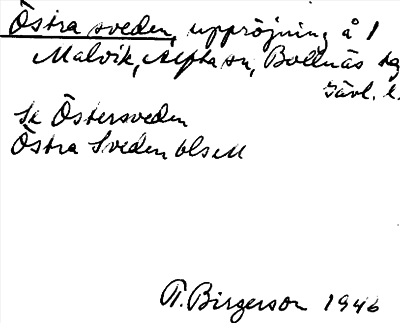 Östra sveden, uppröjning å 1
Malvik, Alfta sn, Bollnäs
Gävl. l.
Se Östersveden
Östra Sveden blsM
T. Birgerson 1946